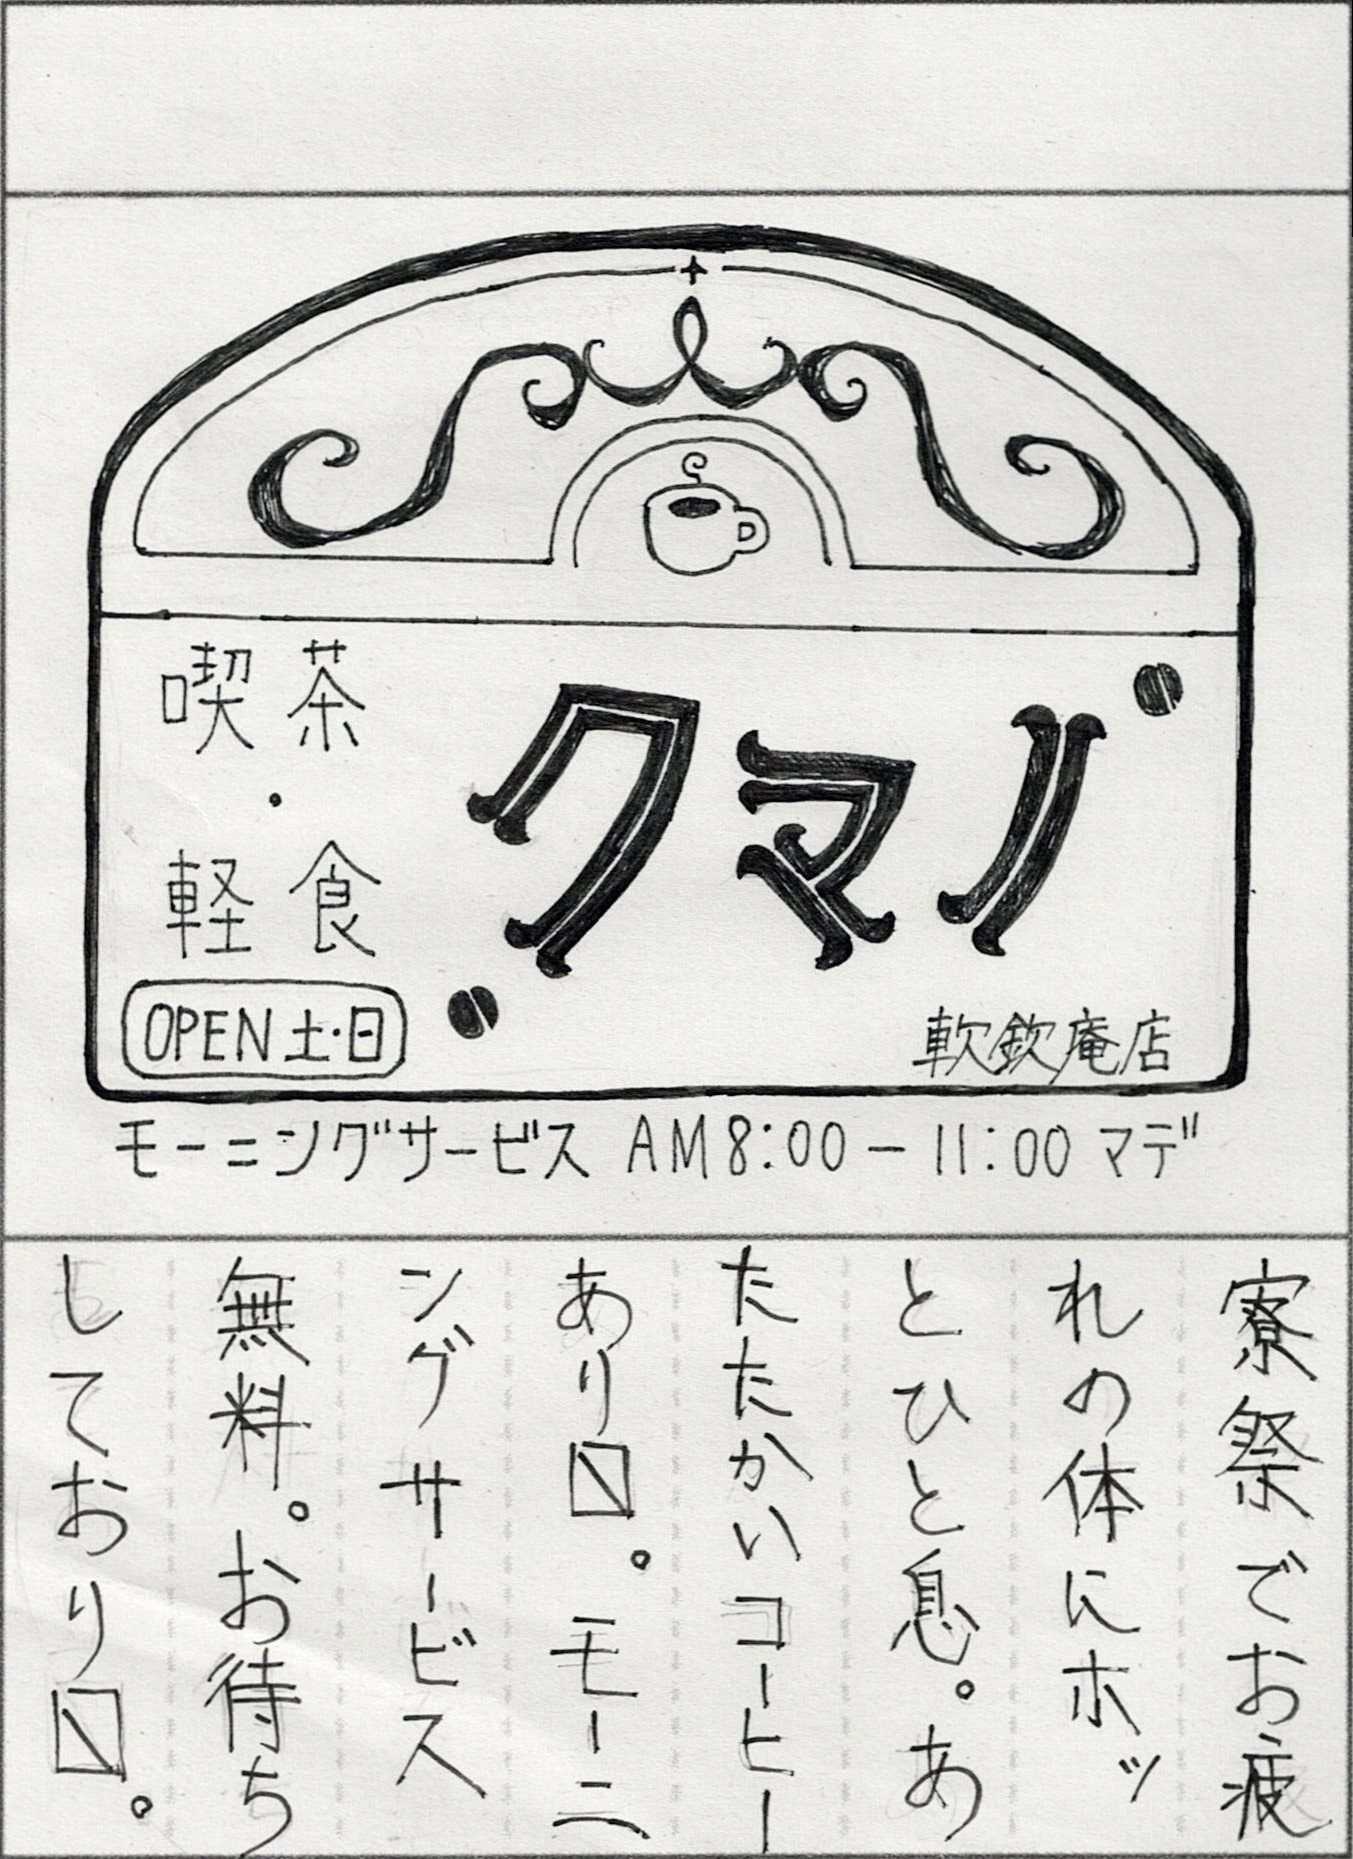 喫茶
・
軽食
クマノ
OPEN 土・日
軟欽庵店
モーニングサービス AM 8:00 － 11:00 マデ
寮祭でお疲
れの体にホッ
とひと息。あ
たたかいコーヒー
あり〼。モーニ
ングサービス
無料。お待ち
しており〼。